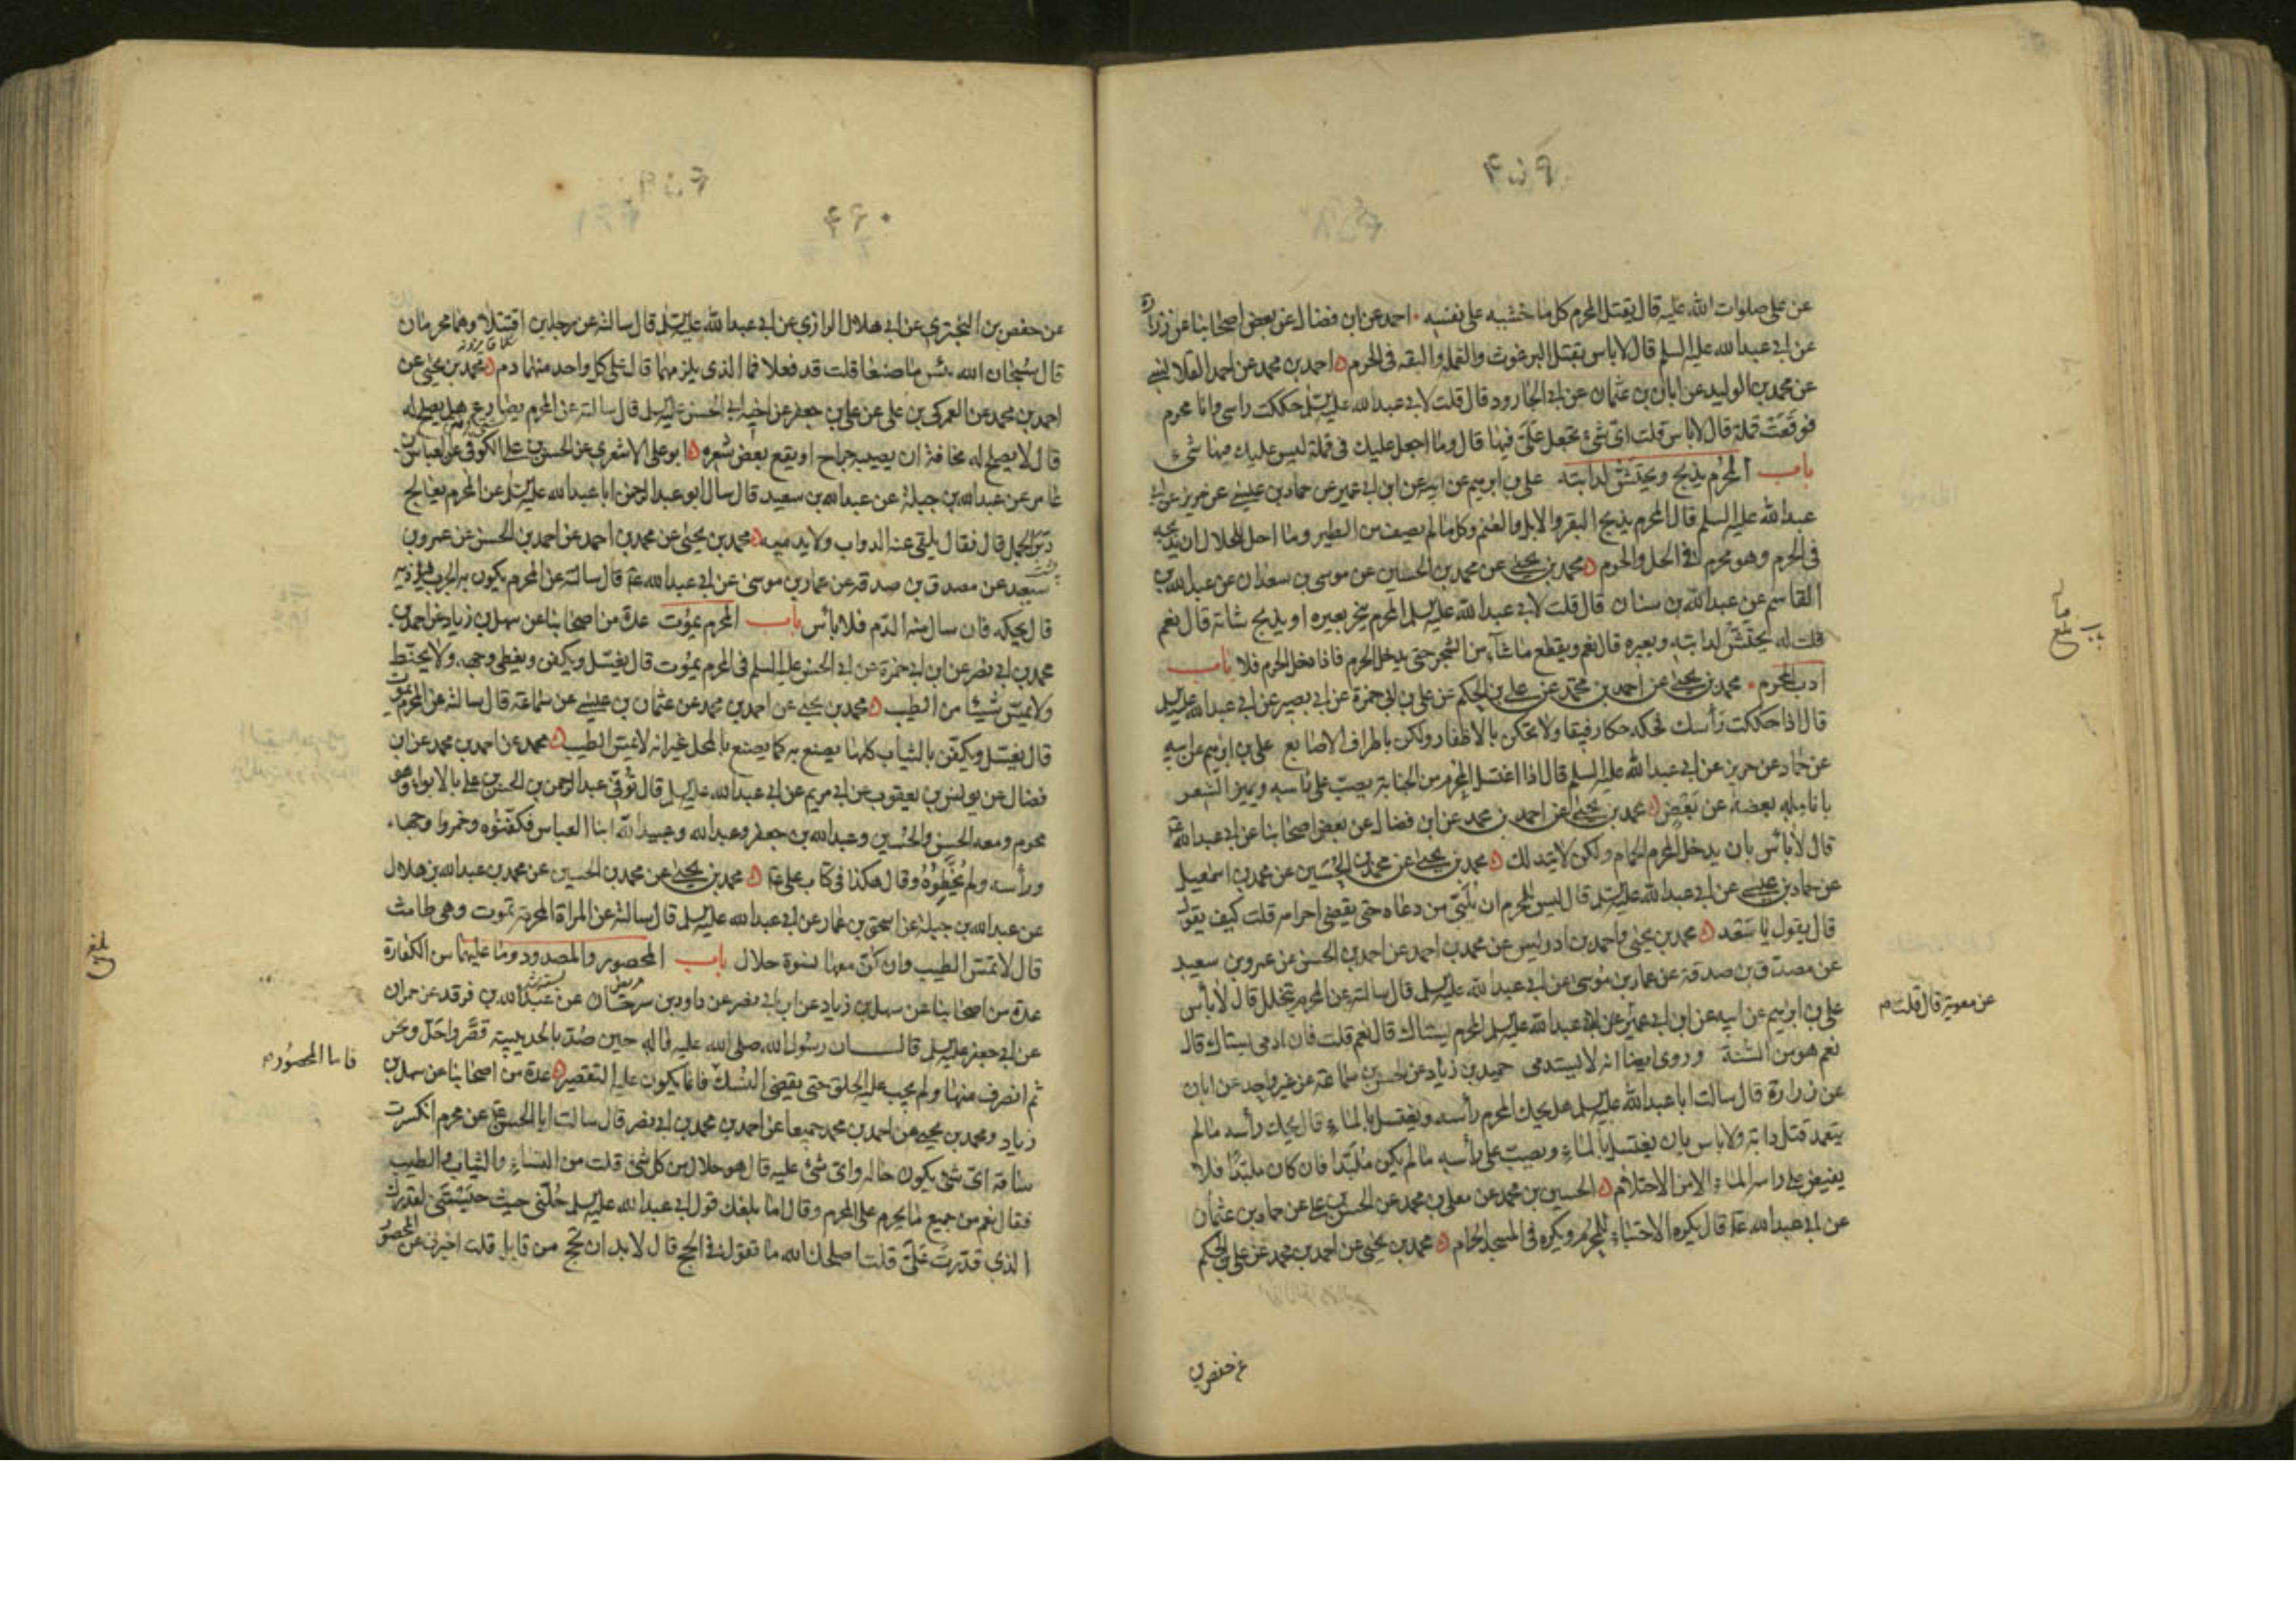 ۴۵۹
عن علي صلوات الله عليه قال يقتل المحرم كل ما خشيه على نفسه احمد عن ابن فضال عن بعض اصحابنا عن زرارة
عن ابي عبد الله عليه السلم قال لا باس بقتل البرغوث والقملة والبقه في الحرم احمد بن محمد عن احمد القلانسي
عن محمد بن الوليد عن ابان بن عثمان عن ابي الجارود قال قلت لابي عبد الله عليه السلم حككت راسي وانا محرم
فوقعت قملة قال لا باس قلت اي شيء تجعل علي فيها قال وما اجعل عليك في قملة ليس عليك فيها شيء
باب المحرم يذبح ويحتش لدابته علي بن ابرهيم عن ابيه عن ابن ابي عمير عن حماد بن عيسى عن حريز عن ابي
عبد الله عليه السلم قال المحرم يذبح البقر والابل والغنم وكل ما لم يصف من الطير وما احل للحلال ان يذبحه
في الحرم وهو محرم في الحل والحرم محمد بن يحيى عن محمد بن الحسين عن موسى بن سعدان عن عبد الله بن
القاسم عن عبد الله بن سنان قال قلت لابي عبد الله عليه السلم المحرم ينحر بعيره او يذبح شاته قال نعم
قلت له يحتش لدابته وبعيره قال نعم ويقطع ما شاء من الشجر حتى يدخل الحرم فاذا دخل الحرم فلا باب
ادب المحرم محمد بن يحيى عن احمد بن محمد عن علي بن الحكم عن علي بن ابي حمزة عن ابي بصير عن ابي عبد الله عليه السلم
قال اذا حككت رأسك فحكه حكا رفيقا ولا تحكن بالاظفار ولكن باطراف الاصابع علي بن ابرهيم عن ابيه
عن حماد عن حريز عن ابي عبد الله عليه السلم قال اذا اغتسل المحرم من الجنابة يصب على راسه ويميز الشعر
بانامله بعضه عن بعض محمد بن يحيى عن احمد بن محمد عن ابن فضال عن بعض اصحابنا عن ابي عبد الله
قال لا بأس بان يدخل المحرم الحمام ولكن لا يتدلك محمد بن يحيى عن محمد بن الحسين عن محمد بن اسمعيل
عن حماد بن عيسى عن ابي عبد الله عليه السلم قال ليس للمحرم ان يلبي من دعاه حتى يقضي احرامه قلت كيف يقول
قال يقول يا سعد محمد بن يحيى واحمد بن ادريس عن محمد بن احمد عن احمد بن الحسن عن عمرو بن سعيد
عن مصدق بن صدقة عن عمار بن موسى عن ابي عبد الله عليه السلم قال سالته عن المحرم يتخلل قال لا بأس
علي بن ابرهيم عن ابيه عن ابن ابي عمير عن ابي عبد الله عليه السلم المحرم يستاك قال نعم قلت فان ادمى يستاك قال
عن معوية قال قلت
نعم هو من السنة وروى ايضا انه لا يستدمي حميد بن زياد عن الحسن بن سماعة عن غير واحد عن ابان
عن زرارة قال سالت ابا عبد الله عليه السلم هل يحك المحرم رأسه ويغتسل بالماء قال يحك رأسه ما لم
يتعمد قتل دابة ولا باس بان يغتسل بالماء ويصب على رأسه ما لم يكن ملبدا فان كان ملبدا فلا
يفيض على راسه الماء الا من الاحتلام الحسين بن محمد عن معلى بن محمد عن الحسن بن علي عن حماد بن عثمان
عن ابي عبد الله قال يكره الاحتباء للمحرم ويكره في المسجد الحرام محمد بن يحيى عن احمد بن محمد عن علي بن الحكم
عن حفص بن
۴۶۰
عن حفص بن البختري عن ابي هلال الرازي عن ابي عبد الله عليه السلم قال سالته عن رجلين اقتتلا وهما محرمان
قال سبحان الله بئس ما صنعا قلت قد فعلا فما الذي يلزمهما قال على كل واحد منهما دم محمد بن يحيى عن
احمد بن محمد عن العمركي بن علي عن علي بن جعفر عن اخيه ابي الحسن عليه السلم قال سالته عن المحرم يصارع هل يصلح له
قال لا يصلح له مخافة ان يصيبه جراح او يقع بعض شعره ابو علي الاشعري عن الحسن بن علي الكوفي عن العباس بن
عامر عن عبد الله بن جبلة عن عبد الله بن سعيد قال سال ابو عبد الرحمن ابا عبد الله عليه السلم عن المحرم يعالج
دبر الجمل قال فقال يلقي عنه الدواب ولا يدميه محمد بن يحيى عن محمد بن احمد عن احمد بن الحسن عن عمرو بن
سعيد عن مصدق بن صدقة عن عمار بن موسى عن ابي عبد الله قال سالته عن المحرم يكون به الجرب
قال يحكه فان سال منه الدم فلا بأس باب المحرم يموت عدة من اصحابنا عن سهل بن زياد عن احمد بن
محمد بن ابي نصر عن ابن ابي حمزة عن ابي الحسن عليه السلم في المحرم يموت قال يغسل ويكفن ويغطى وجهه ولا يحنط
ولا يمس شيئا من الطيب محمد بن يحيى عن احمد بن محمد عن عثمان بن عيسى عن سماعة قال سالته عن المحرم يموت
قال يغسل ويكفن بالثياب كلها يصنع به كما يصنع بالمحل غير انه لا يمس الطيب محمد عن احمد بن محمد عن ابن
فضال عن يونس بن يعقوب عن ابي مريم عن ابي عبد الله عليه السلم قال توفي عبد الرحمن بن الحسن بن علي بالابواء وهو
محرم ومعه الحسن والحسين وعبد الله بن جعفر وعبد الله وعبيد الله ابنا العباس فكفنوه وخمروا وجهه
ورأسه ولم يحنطوه وقال هكذا في كتاب علي محمد بن يحيى عن محمد بن الحسين عن محمد بن عبد الله بن هلال
عن عبد الله بن جبلة عن اسحق بن عمار عن ابي عبد الله عليه السلم قال سالته عن المراة المحرمة تموت وهي طامث
قال لا تمس الطيب وان كن معها نسوة حلال باب المحصور والمصدود وما عليهما من الكفارة
عدة من اصحابنا عن سهل بن زياد عن ابن ابي نصر عن داود بن سرحان عن عبد الله بن فرقد عن حمران
عن ابي جعفر عليه السلم قال ان رسول الله صلى الله عليه واله حين صد بالحديبية قصر واحل ونحر
ثم انصرف منها ولم يجب عليه الحلق حتى يقضي النسك فانما يكون عليه التقصير عدة من اصحابنا عن سهل بن
فاما المحصور
زياد ومحمد بن يحيى عن احمد بن محمد جميعا عن احمد بن محمد بن ابي نصر قال سالت ابا الحسن عن محرم انكسرت
ساقه اي شيء يكون حاله واي شيء عليه قال هو حلال من كل شيء قلت من النساء والثياب والطيب
فقال نعم من جميع ما يحرم على المحرم وقال اما بلغك قول ابي عبد الله عليه السلم حلني حيث حبستني لقدرك
الذي قدرت علي قلت اصلحك الله ما تقول في الحج قال لا بد ان تحج من قابل قلت اخبرني عن المحصور